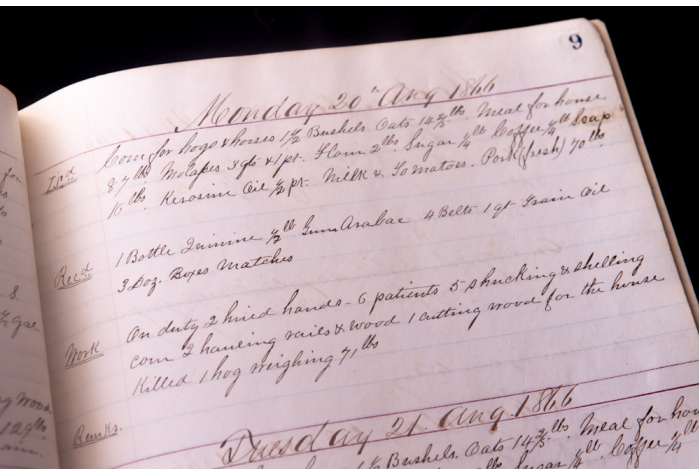 9
Monday 20th Aug 1866
Issd Corn for hogs & horses 1 1/2 Bushels Oats 14 2/5 lbs Meal for house
87 lbs Molases 3 qts & 1 pt. Flour 2 lbs. Sugar 1/4 lb Coffee 1/4 lb Soap
15 lbs. Kerosine Oil 1/2 pt. Milk & Tomatoes. Pork (fresh) 70 lbs
Recd 1 Bottle Quinine 1/2 lb Gum Arabac 4 Belts 1 qt Train Oil
3 Doz. Boxes Matches
Work On duty 2 hired hands - 6 patients 5 shucking & shelling
corn 2 hauling rails & wood 1 cutting wood for the house
Killed 1 hog weighing 71 lbs
Remks.
Tuesday 21 Aug. 1866
Bushels Oats 14 2/5 lbs. Meal for hou
Sugar 1/4 lb Coffee 1/4
for
S.
Gal
ng wood
129 lbs